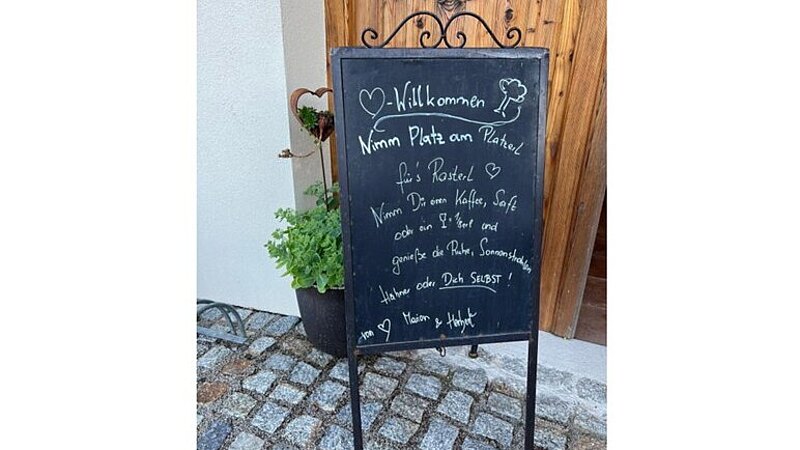 ♡-Willkommen
Nimm Platz am Platzerl
für's Rasterl ♡
Nimm Dir einen Kaffee, Saft
oder ein 1/8erl und
genieße die Ruhe, Sonnenstrahlen
Hühner oder Dich SELBST !
von ♡ Marion &